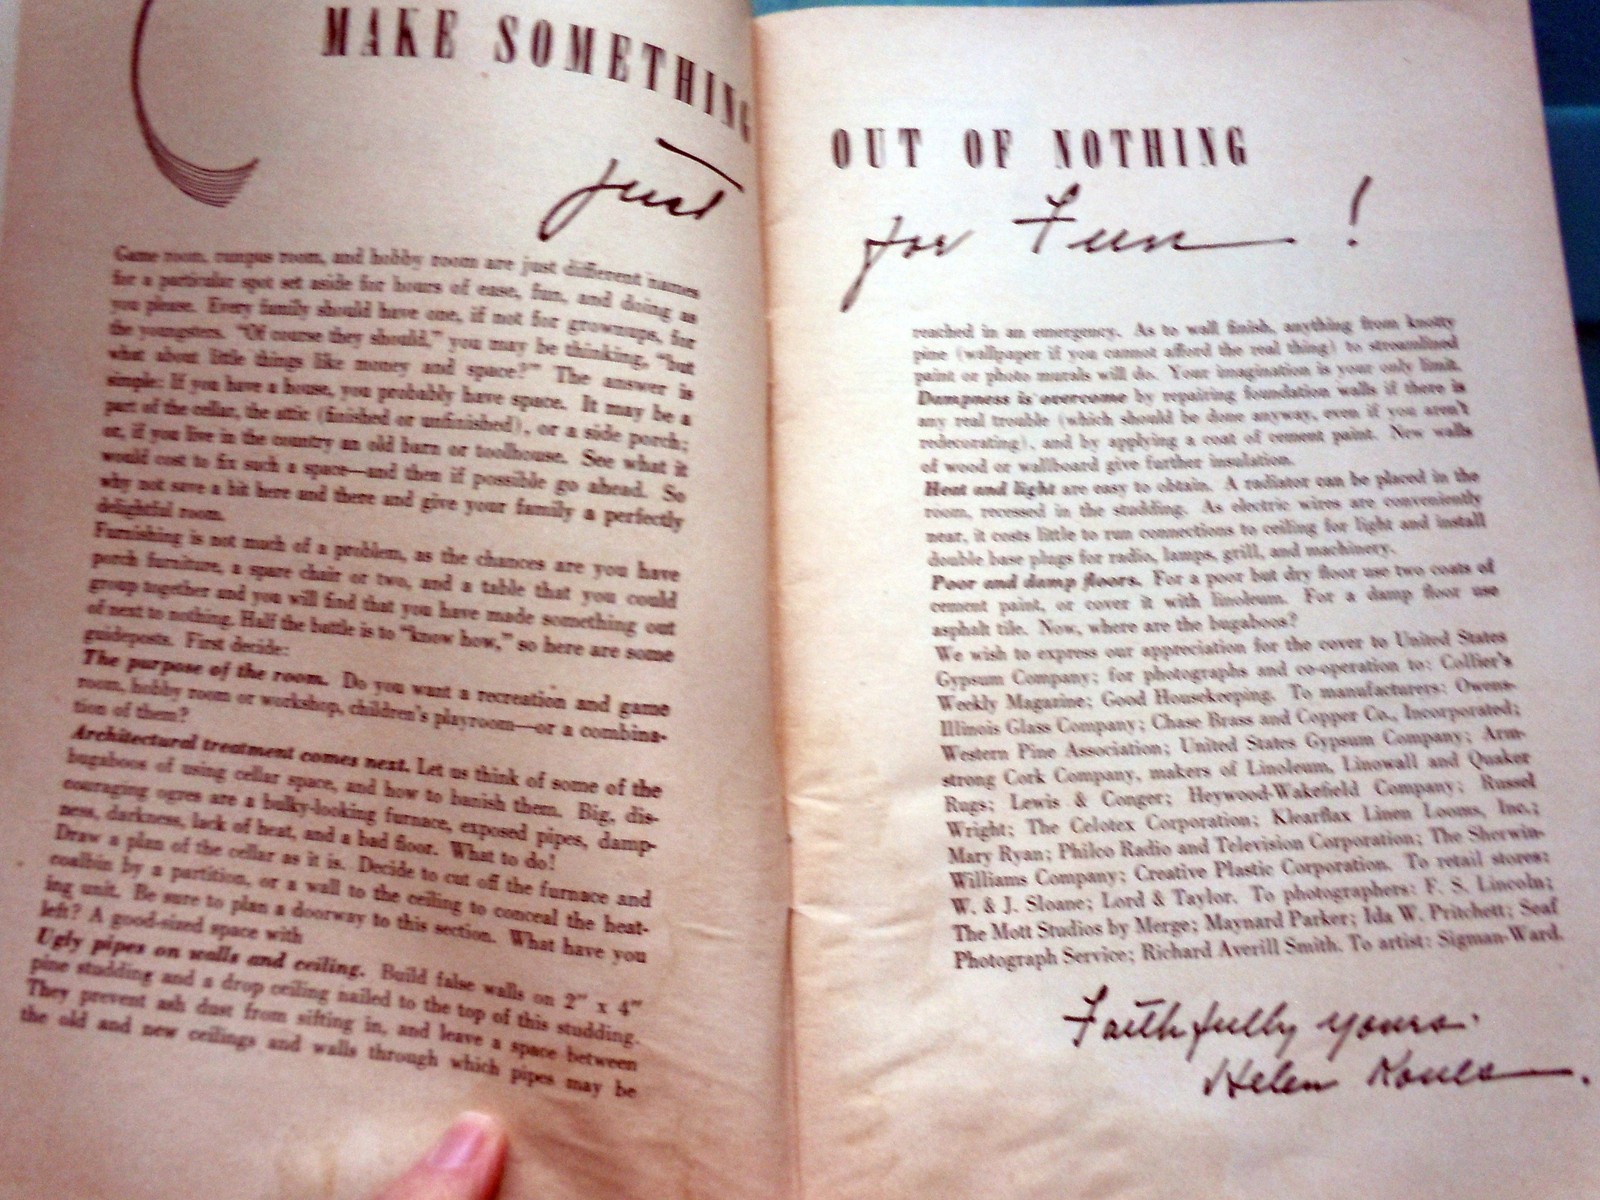 MAKE SOMETHING
just
Game room, rumpus room, and hobby room are just different names
for a particular spot set aside for hours of ease, fun, and doing as
you please. Every family should have one, if not for grownups, for
the youngsters. "Of course they should," you may be thinking, "but
what about little things like money and space?" The answer is
simple: If you have a house, you probably have space. It may be a
part of the cellar, the attic (finished or unfinished), or a side porch;
or, if you live in the country an old barn or toolhouse. See what it
would cost to fix such a space—and then if possible go ahead. So
why not save a bit here and there and give your family a perfectly
delightful room.
Furnishing is not much of a problem, as the chances are you have
porch furniture, a spare chair or two, and a table that you could
group together and you will find that you have made something out
of next to nothing. Half the battle is to "know how," so here are some
guideposts. First decide:
The purpose of the room. Do you want a recreation and game
room, hobby room or workshop, children's playroom—or a combina-
tion of them?
Architectural treatment comes next. Let us think of some of the
bugaboos of using cellar space, and how to banish them. Big, dis-
couraging ogres are a bulky-looking furnace, exposed pipes, damp-
ness, darkness, lack of heat, and a bad floor. What to do!
Draw a plan of the cellar as it is. Decide to cut off the furnace and
coalbin by a partition, or a wall to the ceiling to conceal the heat-
ing unit. Be sure to plan a doorway to this section. What have you
left? A good-sized space with
Ugly pipes on walls and ceiling. Build false walls on 2" x 4"
pine studding and a drop ceiling nailed to the top of this studding.
They prevent ash dust from sifting in, and leave a space between
the old and new ceilings and walls through which pipes may be
OUT OF NOTHING
for Fun!
reached in an emergency. As to wall finish, anything from knotty
pine (wallpaper if you cannot afford the real thing) to streamlined
paint or photo murals will do. Your imagination is your only limit.
Dampness is overcome by repairing foundation walls if there is
any real trouble (which should be done anyway, even if you aren't
redecorating), and by applying a coat of cement paint. New walls
of wood or wallboard give further insulation.
Heat and light are easy to obtain. A radiator can be placed in the
room, recessed in the studding. As electric wires are conveniently
near, it costs little to run connections to ceiling for light and install
double base plugs for radio, lamps, grill, and machinery.
Poor and damp floors. For a poor but dry floor use two coats of
cement paint, or cover it with linoleum. For a damp floor use
asphalt tile. Now, where are the bugaboos?
We wish to express our appreciation for the cover to United States
Gypsum Company; for photographs and co-operation to: Collier's
Weekly Magazine; Good Housekeeping. To manufacturers: Owens-
Illinois Glass Company; Chase Brass and Copper Co., Incorporated;
Western Pine Association; United States Gypsum Company; Arm-
strong Cork Company, makers of Linoleum, Linowall and Quaker
Rugs; Lewis & Conger; Heywood-Wakefield Company; Russel
Wright; The Celotex Corporation; Klearflax Linen Looms, Inc.;
Mary Ryan; Philco Radio and Television Corporation; The Sherwin-
Williams Company; Creative Plastic Corporation. To retail stores:
W. & J. Sloane; Lord & Taylor. To photographers: F. S. Lincoln;
The Mott Studios by Merge; Maynard Parker; Ida W. Pritchett; Seaf
Photograph Service; Richard Averill Smith. To artist: Sigman-Ward.
Faithfully yours.
Helen Koues.